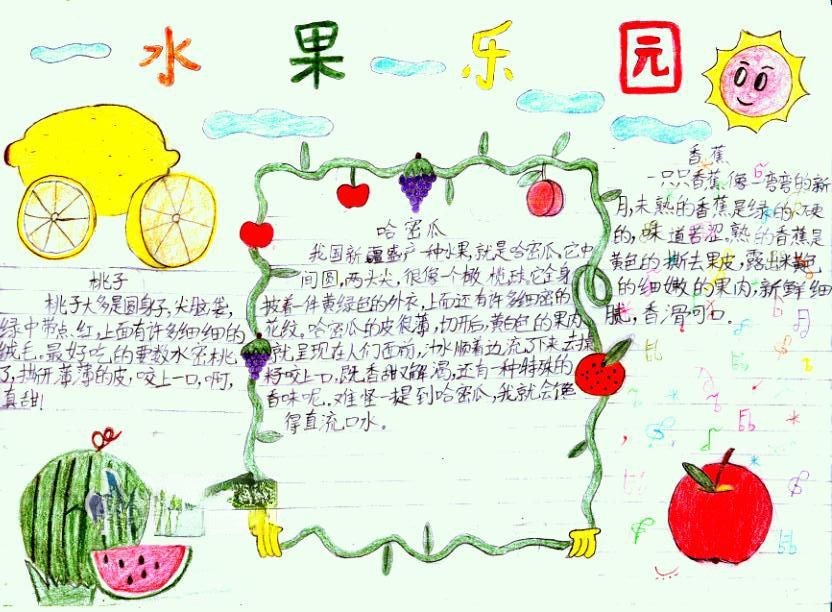 水果乐园
桃子
桃子大多是圆身子,尖脑袋,
绿中带点红,上面有许多细细的
绒毛。最好吃的要数水密桃
了,撕开薄薄的皮,咬上一口,啊,
真甜!
哈密瓜
我国新疆盛产一种水果,就是哈密瓜。它中
间圆,两头尖,很像一个橄榄球。它全身
披着一件黄绿色的外衣,上面还有许多细密的
花纹。哈密瓜的皮很薄,切开后,黄白色的果肉
就呈现在人们面前,汁水顺着边流了下去,
咬上一口,既香甜又解渴,还有一种特殊的
香味呢。难怪一提到哈密瓜,我就会馋
得直流口水。
香蕉
一只只香蕉像一弯弯的新
月,未熟的香蕉是绿的,硬
的,味道苦涩。熟的香蕉是
黄色的,撕去果皮,露出米黄色
的细嫩的果肉,新鲜细
腻,香滑可口。